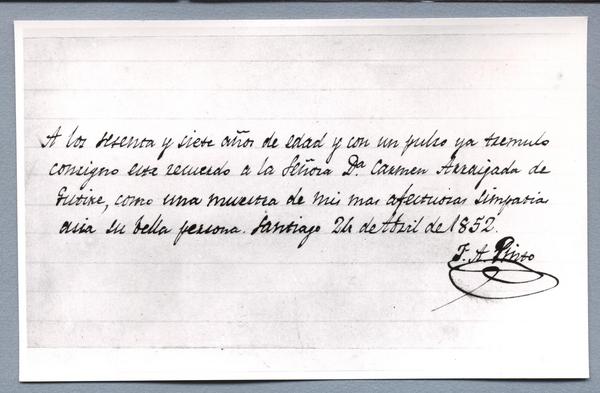 A los sesenta y siete años de edad y con un pulso ya tremulo
consigno este recuerdo a la Señora Da. Carmen Arraigada de
Gutike, como una muestra de mis mas afectuosas simpatias
asia su bella persona. Santiago 24 de Abril de 1852.
F. A. Pinto